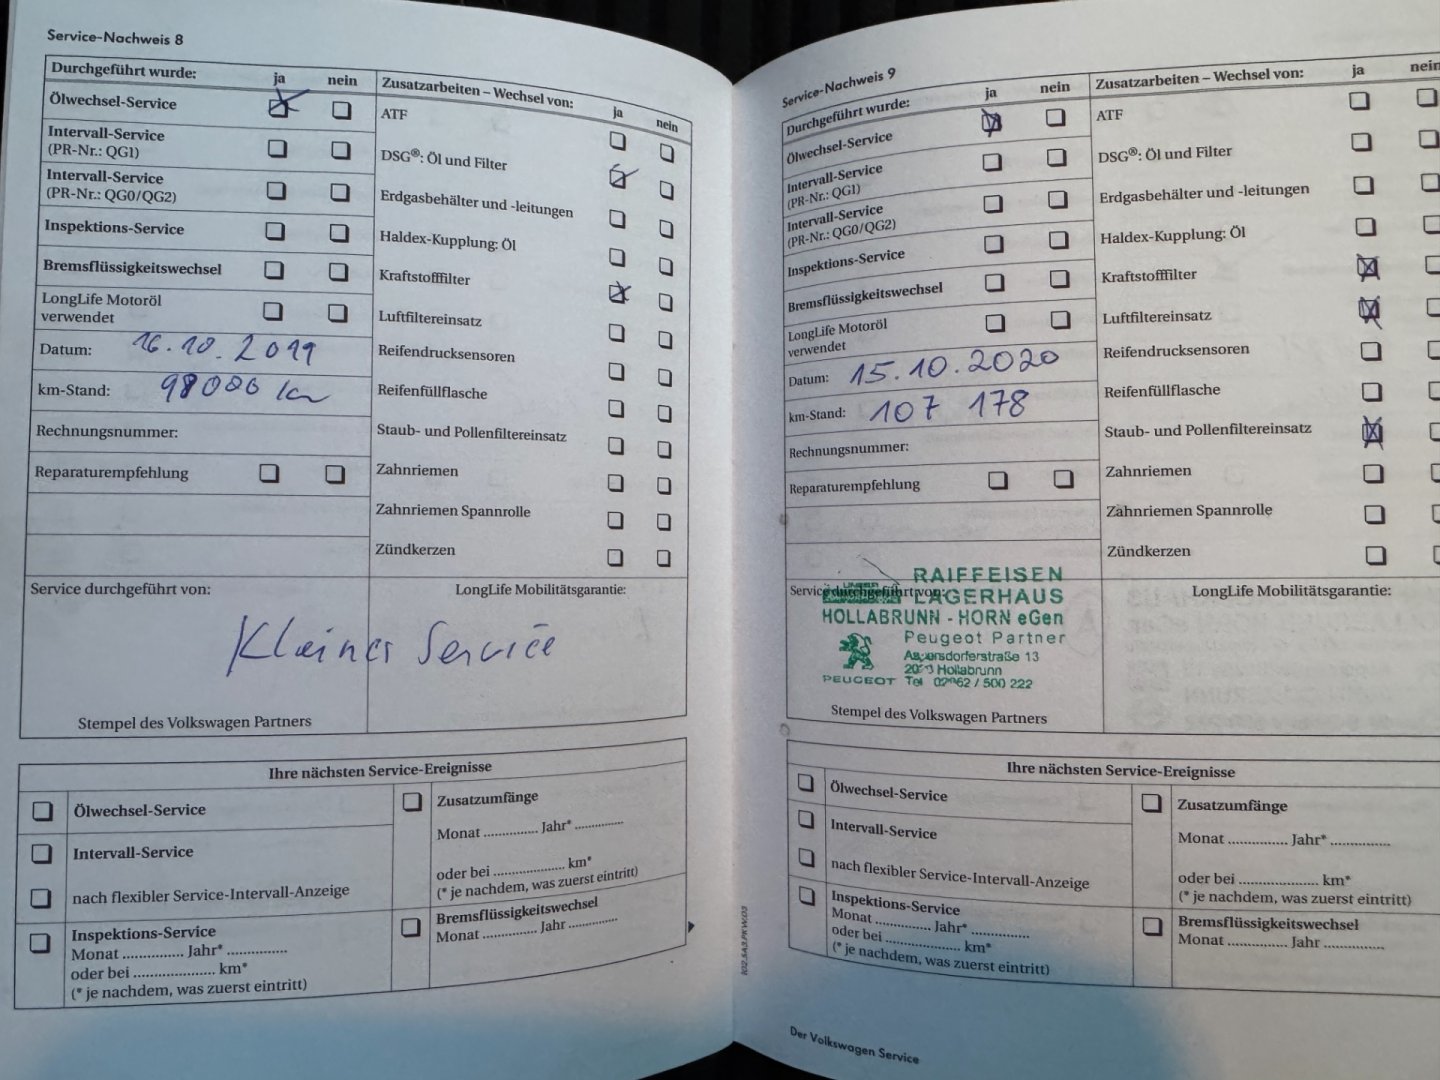 Service-Nachweis 8
Durchgeführt wurde: ja nein
Ölwechsel-Service
Intervall-Service
(PR-Nr.: QG1)
Intervall-Service
(PR-Nr.: QG0/QG2)
Inspektions-Service
Bremsflüssigkeitswechsel
LongLife Motoröl
verwendet
Datum: 16.10.2019
km-Stand: 98000 km
Rechnungsnummer:
Reparaturempfehlung
Zusatzarbeiten – Wechsel von: ja nein
ATF
DSG®: Öl und Filter
Erdgasbehälter und -leitungen
Haldex-Kupplung: Öl
Kraftstofffilter
Luftfiltereinsatz
Reifendrucksensoren
Reifenfüllflasche
Staub- und Pollenfiltereinsatz
Zahnriemen
Zahnriemen Spannrolle
Zündkerzen
Service durchgeführt von:
LongLife Mobilitätsgarantie:
Kleiner Service
Stempel des Volkswagen Partners
Ihre nächsten Service-Ereignisse
Ölwechsel-Service
Intervall-Service
nach flexibler Service-Intervall-Anzeige
Inspektions-Service
Monat ............... Jahr* ..............
oder bei .................... km*
(* je nachdem, was zuerst eintritt)
Zusatzumfänge
Monat ............. Jahr* ............
oder bei .................. km*
(* je nachdem, was zuerst eintritt)
Bremsflüssigkeitswechsel
Monat ............. Jahr ............
Service-Nachweis 9
Durchgeführt wurde: ja nein
Ölwechsel-Service
Intervall-Service
(PR-Nr.: QG1)
Intervall-Service
(PR-Nr.: QG0/QG2)
Inspektions-Service
Bremsflüssigkeitswechsel
LongLife Motoröl
verwendet
Datum: 15.10.2020
km-Stand: 107 178
Rechnungsnummer:
Reparaturempfehlung
Zusatzarbeiten – Wechsel von: ja nein
ATF
DSG®: Öl und Filter
Erdgasbehälter und -leitungen
Haldex-Kupplung: Öl
Kraftstofffilter
Luftfiltereinsatz
Reifendrucksensoren
Reifenfüllflasche
Staub- und Pollenfiltereinsatz
Zahnriemen
Zahnriemen Spannrolle
Zündkerzen
Service durchgeführt von:
LongLife Mobilitätsgarantie:
RAIFFEISEN
LAGERHAUS
HOLLABRUNN - HORN eGen
Peugeot Partner
Aspersdorferstraße 13
Hollabrunn
PEUGEOT Tel / 500 222
Stempel des Volkswagen Partners
Ihre nächsten Service-Ereignisse
Ölwechsel-Service
Intervall-Service
nach flexibler Service-Intervall-Anzeige
Inspektions-Service
Monat .............. Jahr* ..............
oder bei .................. km*
(* je nachdem, was zuerst eintritt)
Zusatzumfänge
Monat ............... Jahr* ...............
oder bei .................... km*
(* je nachdem, was zuerst eintritt)
Bremsflüssigkeitswechsel
Monat ............... Jahr ...............
Der Volkswagen Service